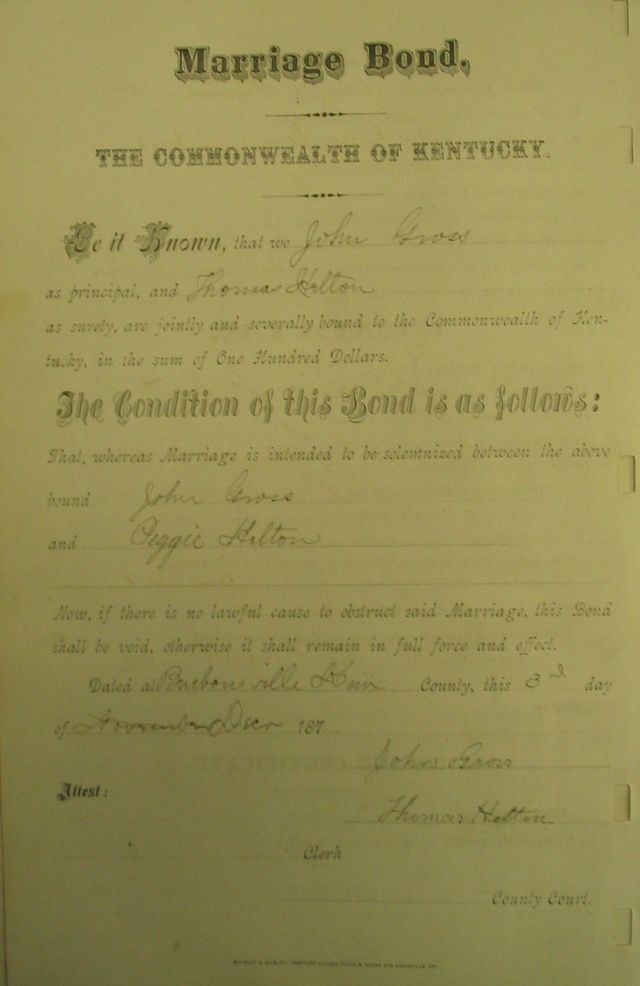 Marriage Bond,
THE COMMONWEALTH OF KENTUCKY.
Be it Known, that we John Gross
as principal, and Thomas Helton
as surety, are jointly and severally bound to the Commonwealth of Ken-
tucky, in the sum of One Hundred Dollars.
The Condition of this Bond is as follows:
That, whereas Marriage is intended to be solemnized between the above
bound John Gross
and Peggie Helton
Now, if there is no lawful cause to obstruct said Marriage, this Bond
shall be void, otherwise it shall remain in full force and effect.
Dated at Barboursville Knox County, this 3rd day
of November Decr 187
John Gross
Attest:
Thomas Helton
Clerk
County Court.